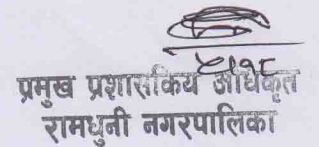 प्रमुख प्रशासकिय अधिकृत
रामधुनी नगरपालिका